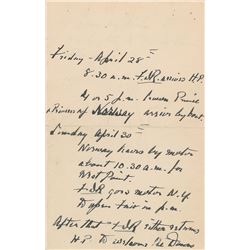 Friday - April 28th
8.30 a.m. FDR arrives H.P.
4 or 5 p.m. Crown Prince
& Princess of Norway arrive by boat.
Sunday April 30th
Norway leaves by motor
about 10.30 a.m. for
West Point.
FDR goes motor N.Y.
To open fair in p.m.
After that FDR either returns
H.P. to welcome